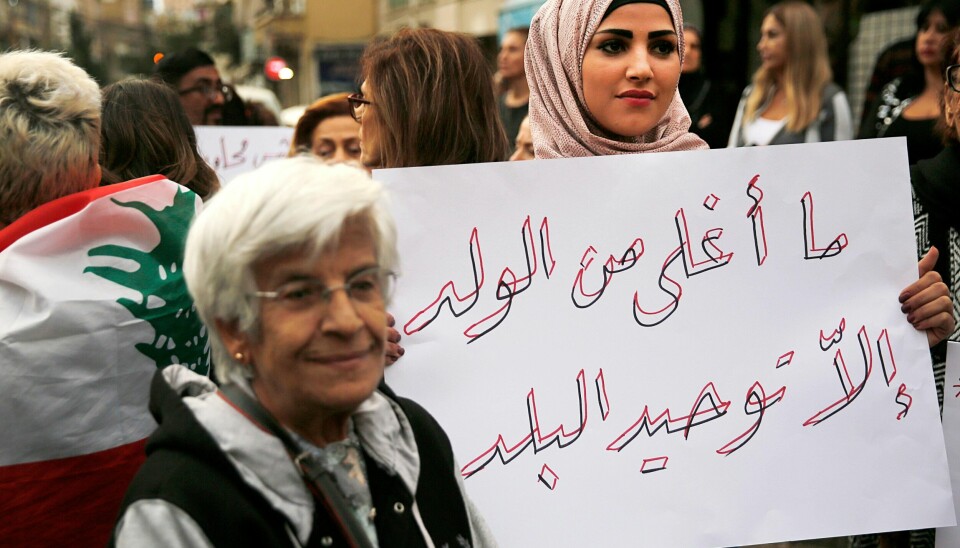 ما أغلى من الولد
إلّا توحيد البلد